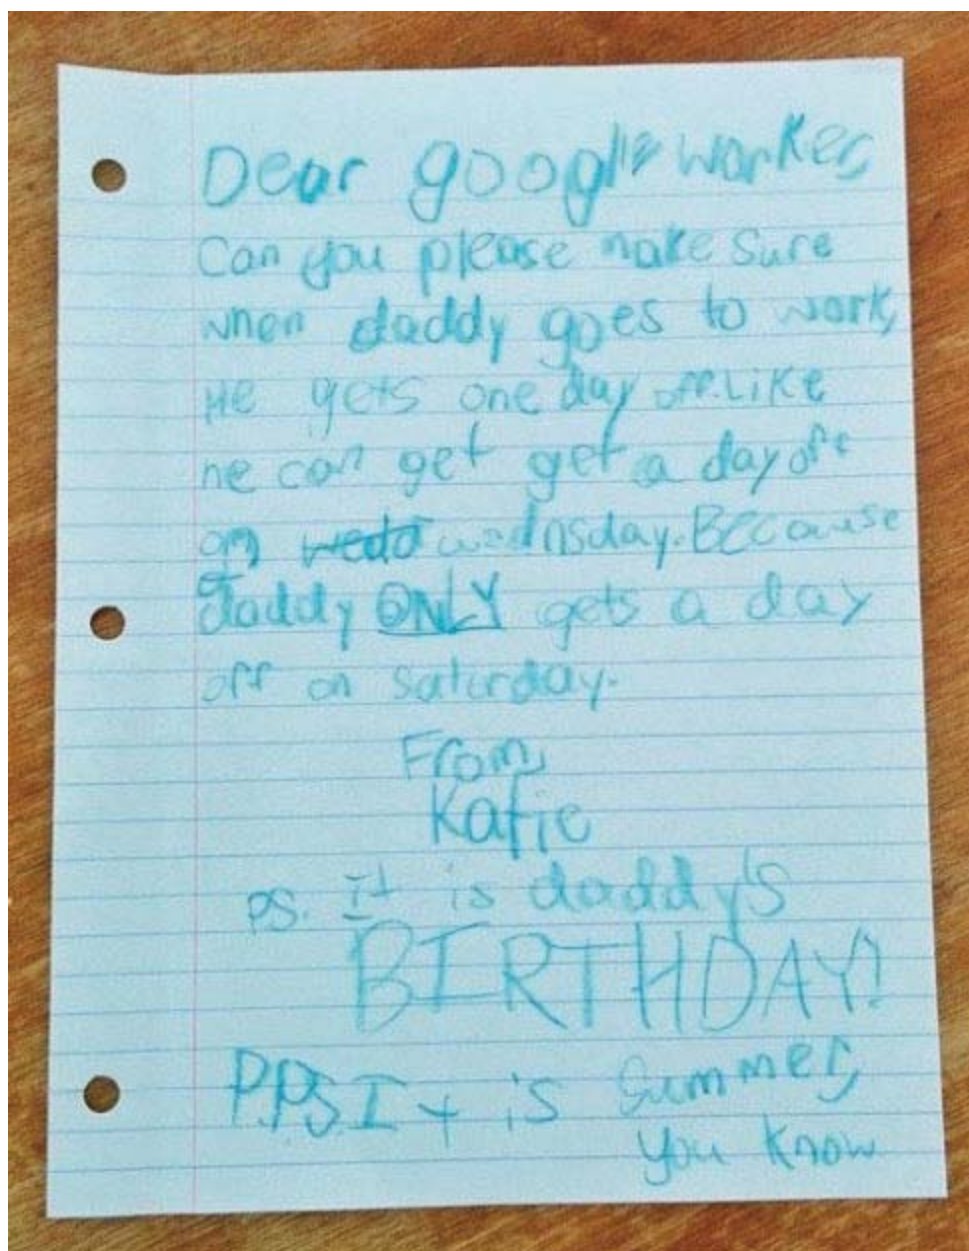 Dear google worker,
Can you please make sure
when daddy goes to work,
He gets one day off. Like
he can get get a day off
on wedo wednsday. Because
daddy ONLY gets a day
off on saturday.
From,
Katie
P.S. It is daddy's
BIRTHDAY!
P.P.S. It is Summer,
you know